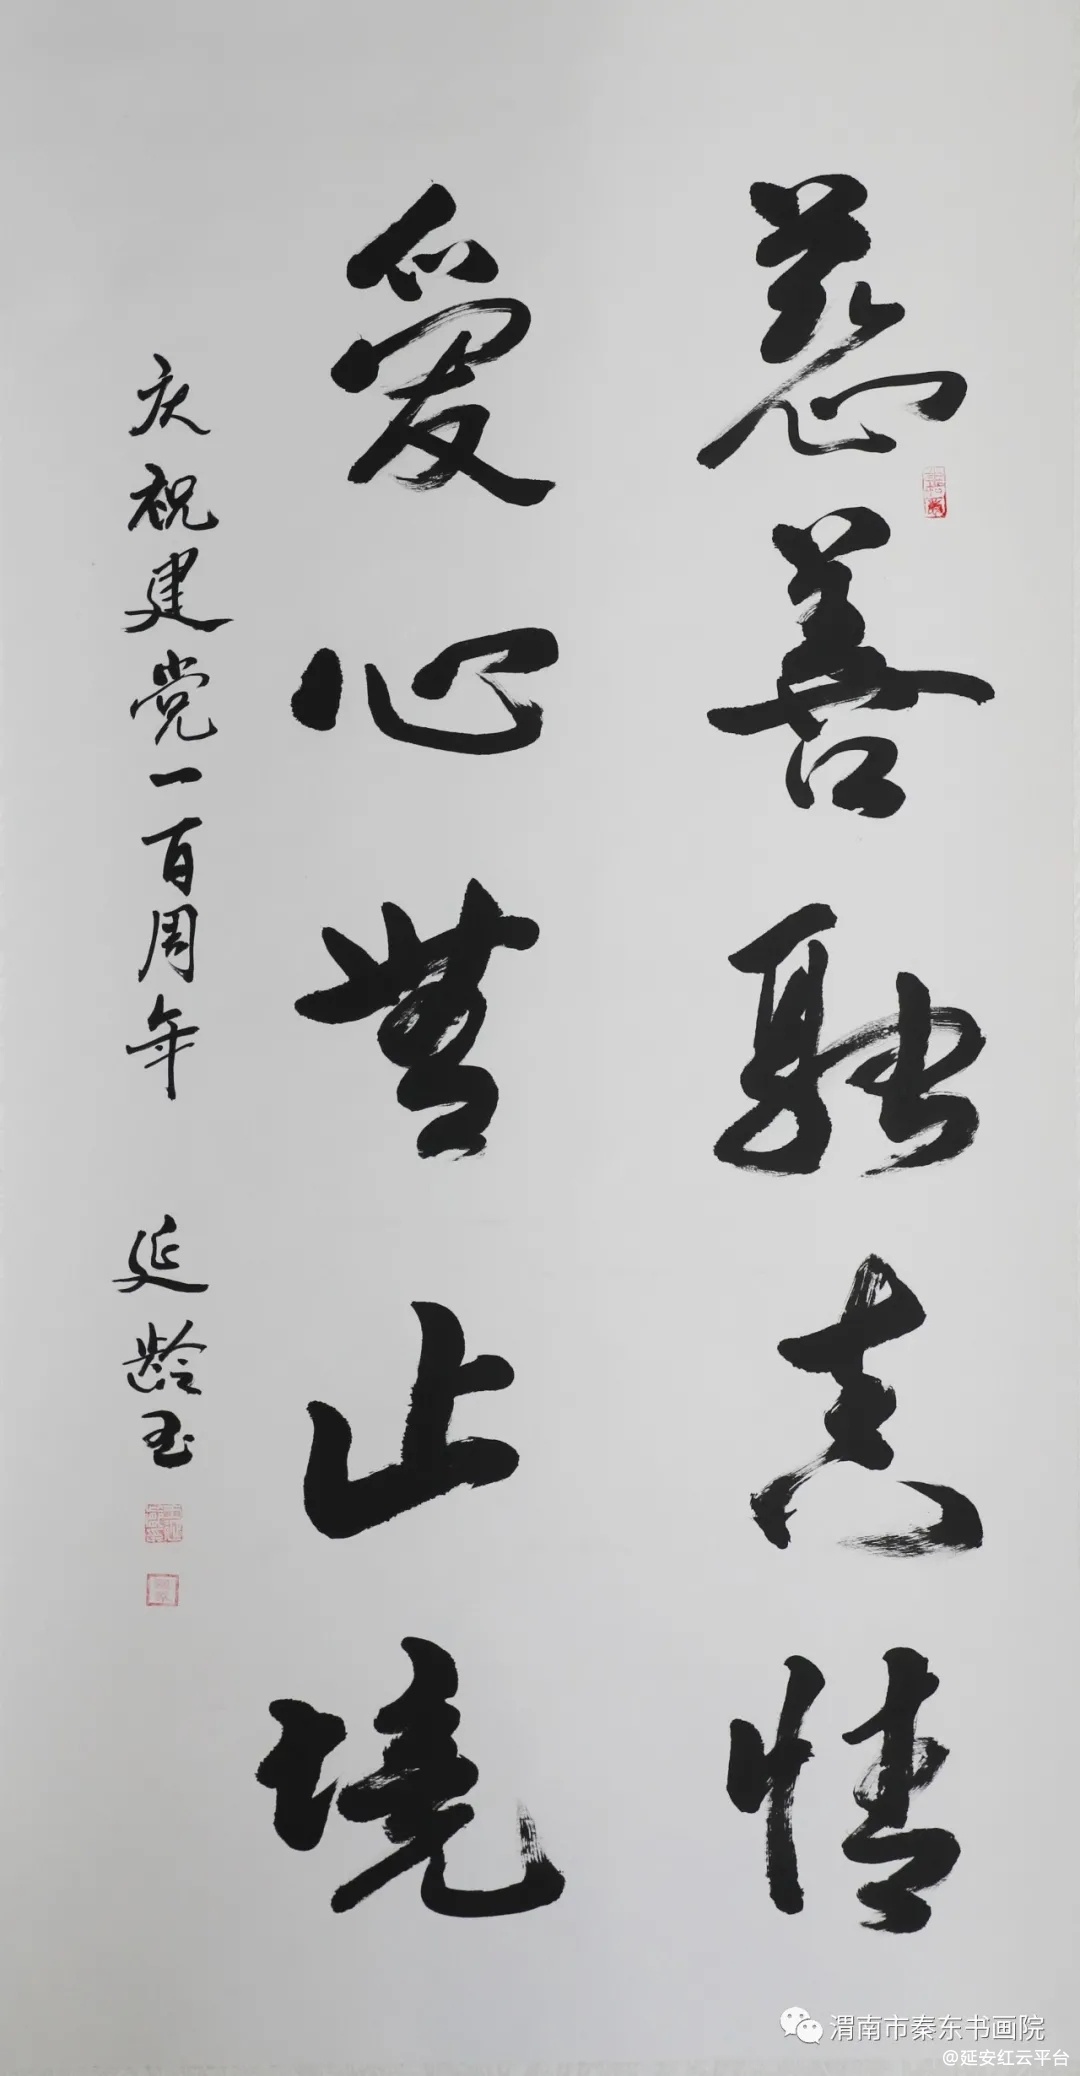 慈善融真情
愛心無止境
庆祝建党一百周年 延龄
渭南市秦东书画院
@延安红云平台